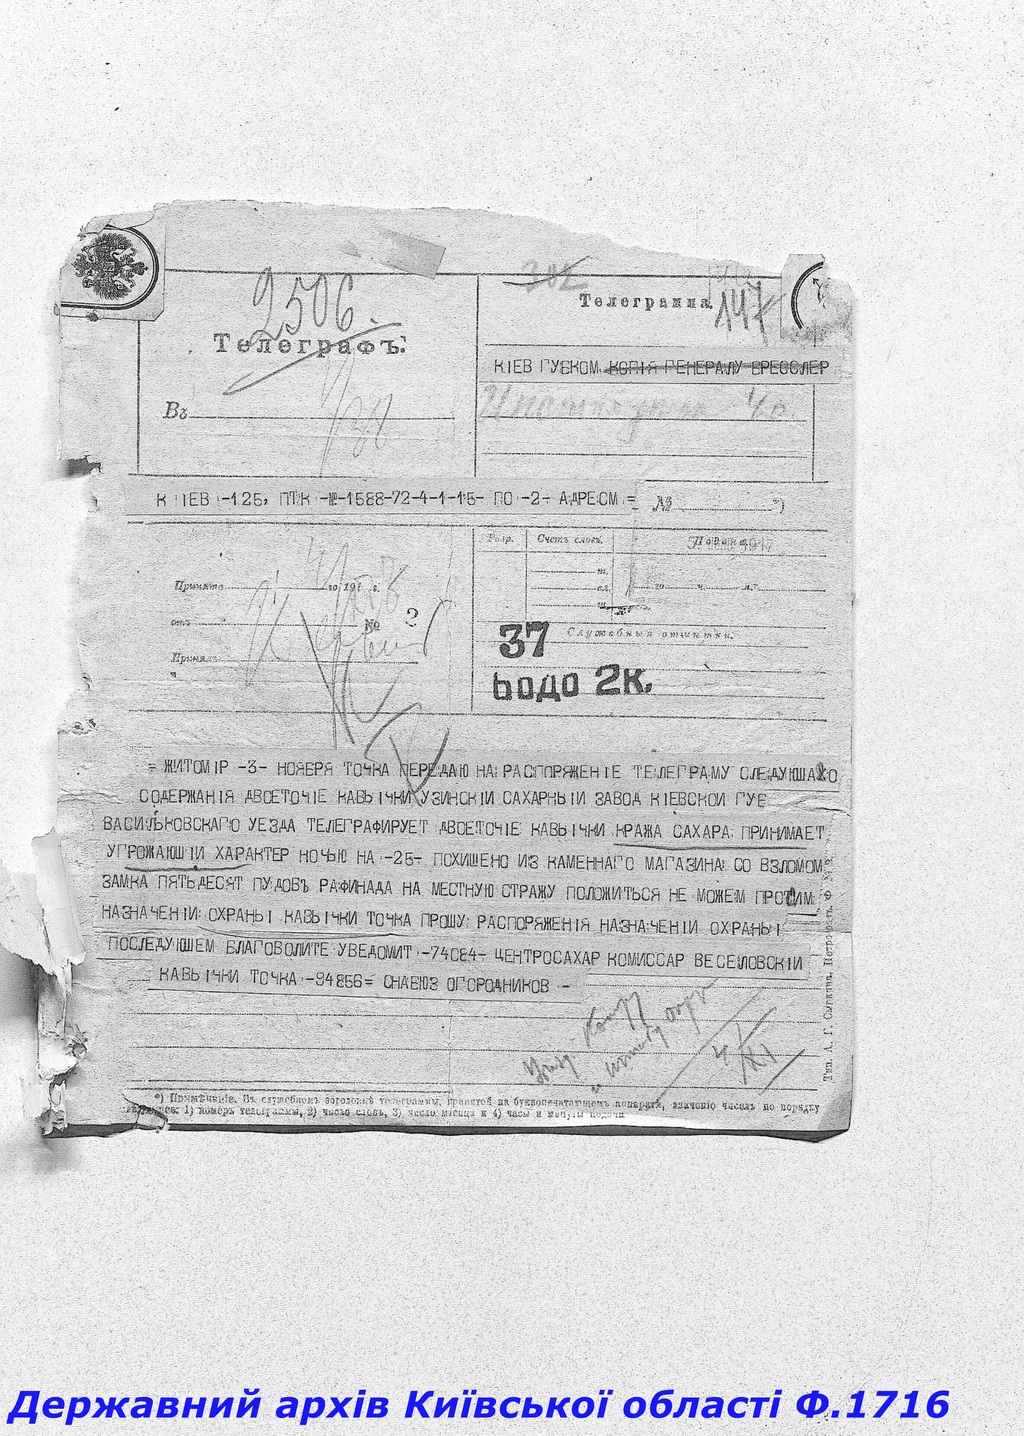 2506.
302
Телеграмма.
147
Телеграфъ.
КІЕВ ГУБКОМ КОПІЯ ГЕНЕРАЛУ БРЕССЛЕР
Въ
КІЕВ -125, ПТК -№-1588-72-4-1-15- ПО -2- АДРЕСМ =
№ *)
Разр.
Счетъ словъ.
Принята го 191 г.
го ч. м.
изъ № 2
Служебныя отмѣтки.
Принялъ
37
Бодо 2к.
= ЖИТОМІР -3- НОЯБРЯ ТОЧКА ПЕРЕДАЮ НА РАСПОРЯЖЕНІЕ ТЕЛЕГРАМУ СЛЕДУЮШАГО
СОДЕРЖАНІЯ ДВОЕТОЧІЕ КАВЫЧКИ УЗИНСКІЙ САХАРНЫЙ ЗАВОД КІЕВСКОЙ ГУБ
ВАСИЛЬКОВСКАГО УЕЗДА ТЕЛЕГРАФИРУЕТ ДВОЕТОЧІЕ КАВЫЧКИ КРАЖА САХАРА ПРИНИМАЕТ
УГРОЖАЮШІЙ ХАРАКТЕР НОЧЬЮ НА -25- ПОХИШЕНО ИЗ КАМЕННАГО МАГАЗИНА СО ВЗЛОМОМ
ЗАМКА ПЯТЬДЕСЯТ ПУДОВЪ РАФИНАДА НА МЕСТНУЮ СТРАЖУ ПОЛОЖИТЬСЯ НЕ МОЖЕМ ПРОСИМ
НАЗНАЧЕНІЙ ОХРАНЫ КАВЫЧКИ ТОЧКА ПРОШУ РАСПОРЯЖЕНІЯ НАЗНАЧЕНІЙ ОХРАНЫ
ПОСЛЕДУЮШЕМ БЛАГОВОЛИТЕ УВЕДОМИТ -74084- ЦЕНТРОСАХАР КОМИССАР ВЕСЕЛОВСКІЙ
КАВЫЧКИ ТОЧКА -94856= СНАБЮЗ ОГОРОДНИКОВ -
4/XI
*) Примѣчаніе. Въ служебномъ заголовкѣ телеграммы, принятой на буквопечатающемъ аппаратѣ, значеніе чиселъ по порядку
1) номеръ телеграммы, 2) число словъ, 3) число мѣсяца и 4) часы и минуты подачи
Державний архів Київської області Ф.1716